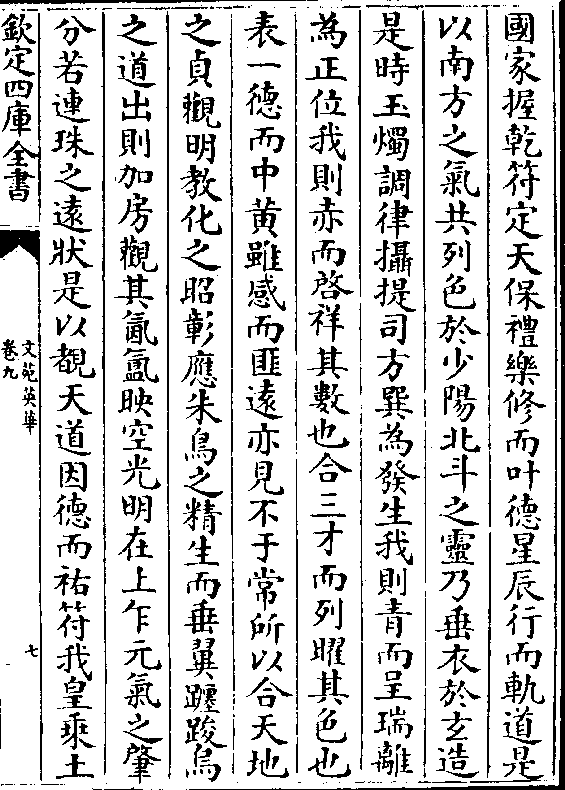 國家握乾符定天保禮樂修而叶德星辰行而軌道是
以南方之氣共列色於少陽北斗之靈乃垂衣於玄造
是時玉燭調律攝提司方巽為發生我則青而呈瑞離
為正位我則赤而啓祥其數也合三才而列曜其色也
表一德而中黄雖感而匪遠亦見不于常所以合天地
之貞觀明教化之昭彰應朱鳥之精生而垂翼躔踆烏
之道出則加房觀其氤氲映空光明在上乍元氣之肇
分若連珠之遠狀是以覩天道因德而祐符我皇乘土
欽定四庫全書
文苑英華
卷九
七